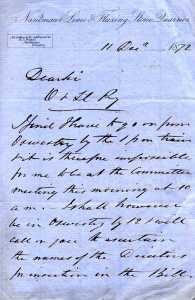 Nantmawr Lime & Fluxing Stone Quarries
11 Decr 1872
Dear Sir
O & Ll Ry
I find I have to go on from
Oswestry by the 1 pm train
& it is therefore impossible
for me to be at the Committee
meeting this morning at 10
a.m. – I shall however
be in Oswestry by 12 & will
call on you to ascertain
the names of the Directors
for insertion in the Bill